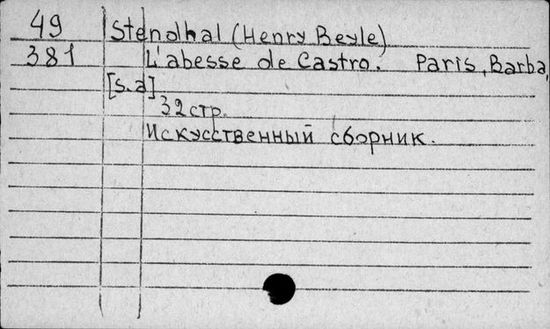 49 Stendhal (Henry Beyle)
381 L'abesse de Castro. Paris, Barba,
[s.a]
32 стр.
Искусственный сборник.